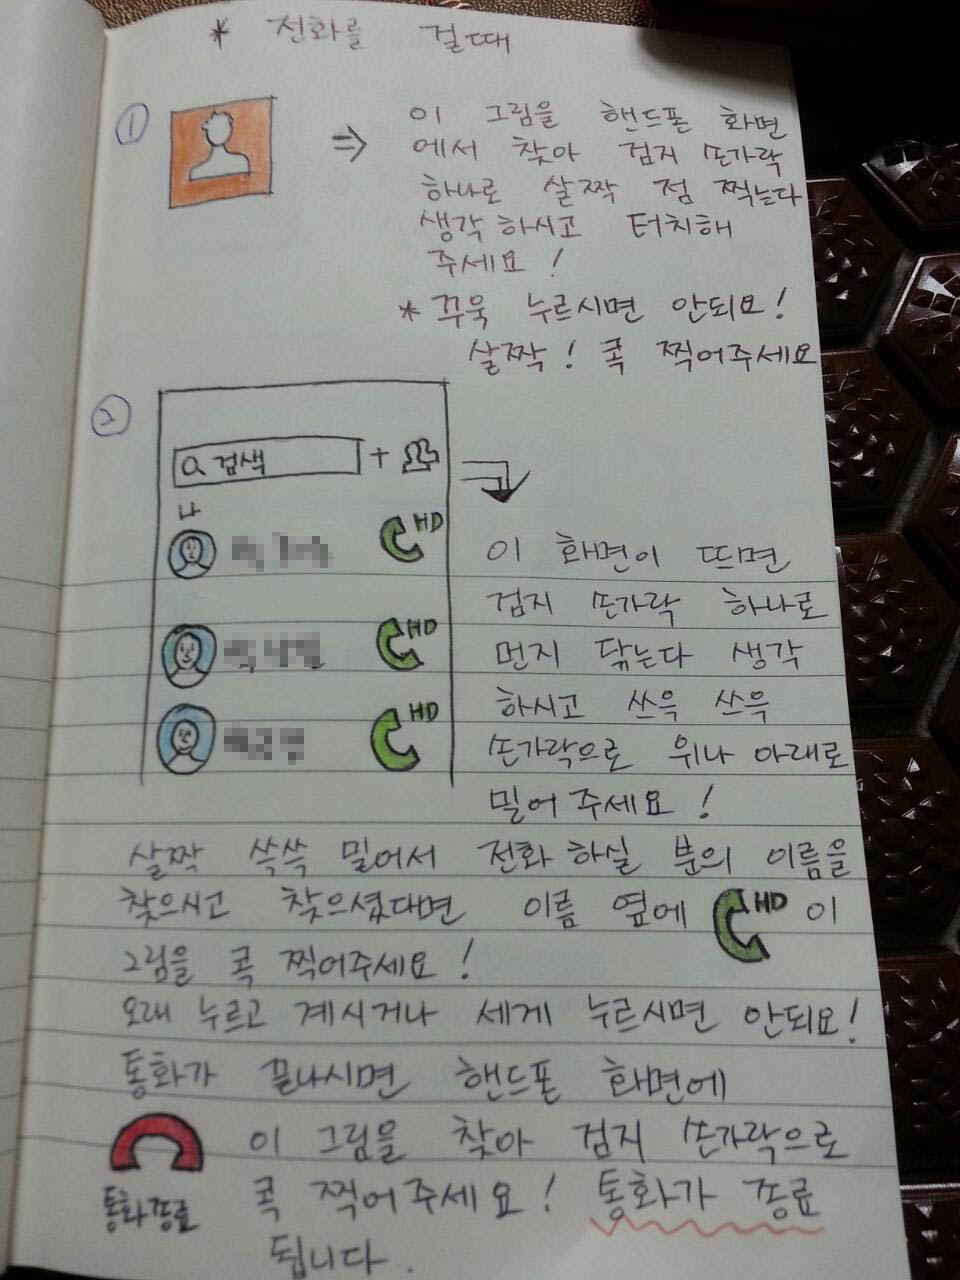 * 전화를 걸때
① ⇒ 이 그림을 핸드폰 화면
에서 찾아 검지 손가락
하나로 살짝 점 찍는다
생각하시고 터치해
주세요!
* 꾸욱 누르시면 안되요!
살짝! 콕 찍어주세요
②
검색 +
나
HD
HD
HD
이 화면이 뜨면
검지 손가락 하나로
먼지 닦는다 생각
하시고 쓰윽 쓰윽
손가락으로 위나 아래로
밀어 주세요!
살짝 쓱쓱 밀어서 전화 하실 분의 이름을
찾으시고 찾으셨다면 이름 옆에 HD 이
그림을 콕 찍어주세요!
오래 누르고 계시거나 세게 누르시면 안되요!
통화가 끝나시면 핸드폰 화면에
이 그림을 찾아 검지 손가락으로
통화종료
콕 찍어주세요! 통화가 종료
됩니다.